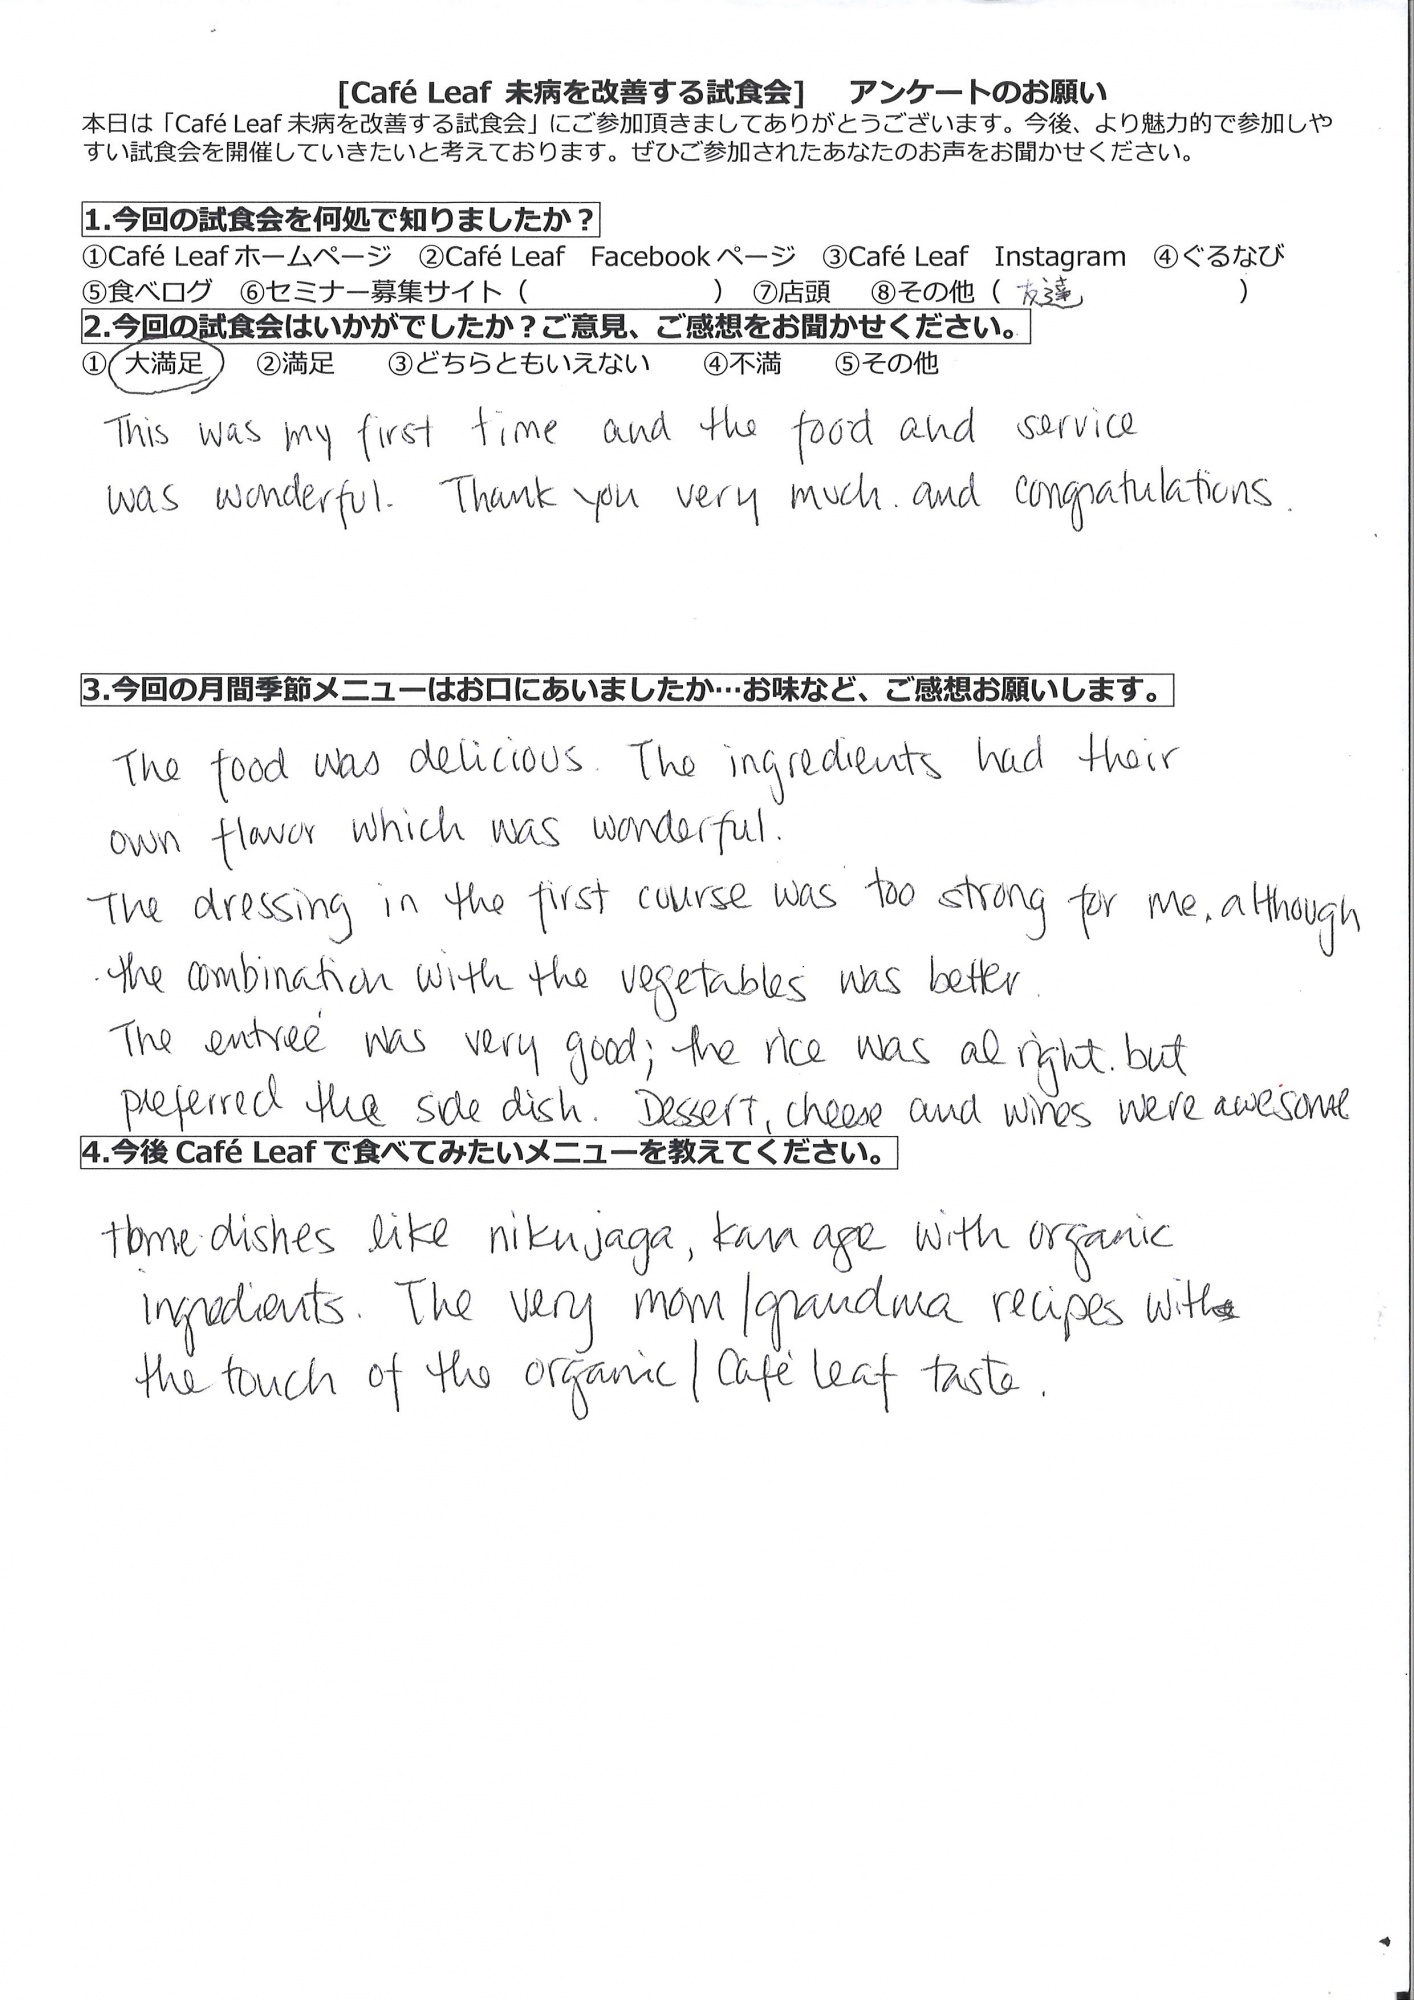 [Café Leaf 未病を改善する試食会]　アンケートのお願い
本日は「Café Leaf 未病を改善する試食会」にご参加頂きましてありがとうございます。今後、より魅力的で参加しや
すい試食会を開催していきたいと考えております。ぜひご参加されたあなたのお声をお聞かせください。
1.今回の試食会を何処で知りましたか？
①Café Leaf ホームページ　②Café Leaf　Facebook ページ　③Café Leaf　Instagram　④ぐるなび
⑤食べログ　⑥セミナー募集サイト（　　　　　　　）　⑦店頭　⑧その他（ 友達　　　　　　）
2.今回の試食会はいかがでしたか？ご意見、ご感想をお聞かせください。
①　大満足　②満足　③どちらともいえない　④不満　⑤その他
This was my first time and the food and service
was wonderful. Thank you very much. and congratulations.
3.今回の月間季節メニューはお口にあいましたか…お味など、ご感想お願いします。
The food was delicious. The ingredients had their
own flavor which was wonderful.
The dressing in the first course was too strong for me, although
the combination with the vegetables was better.
The entreé was very good; the rice was al right. but
preferred the side dish. Dessert, cheese and wines were awesome
4.今後 Café Leaf で食べてみたいメニューを教えてください。
Home dishes like nikujaga, karaage with organic
ingredients. The very mom/grandma recipes with
the touch of the organic/Café leaf taste.